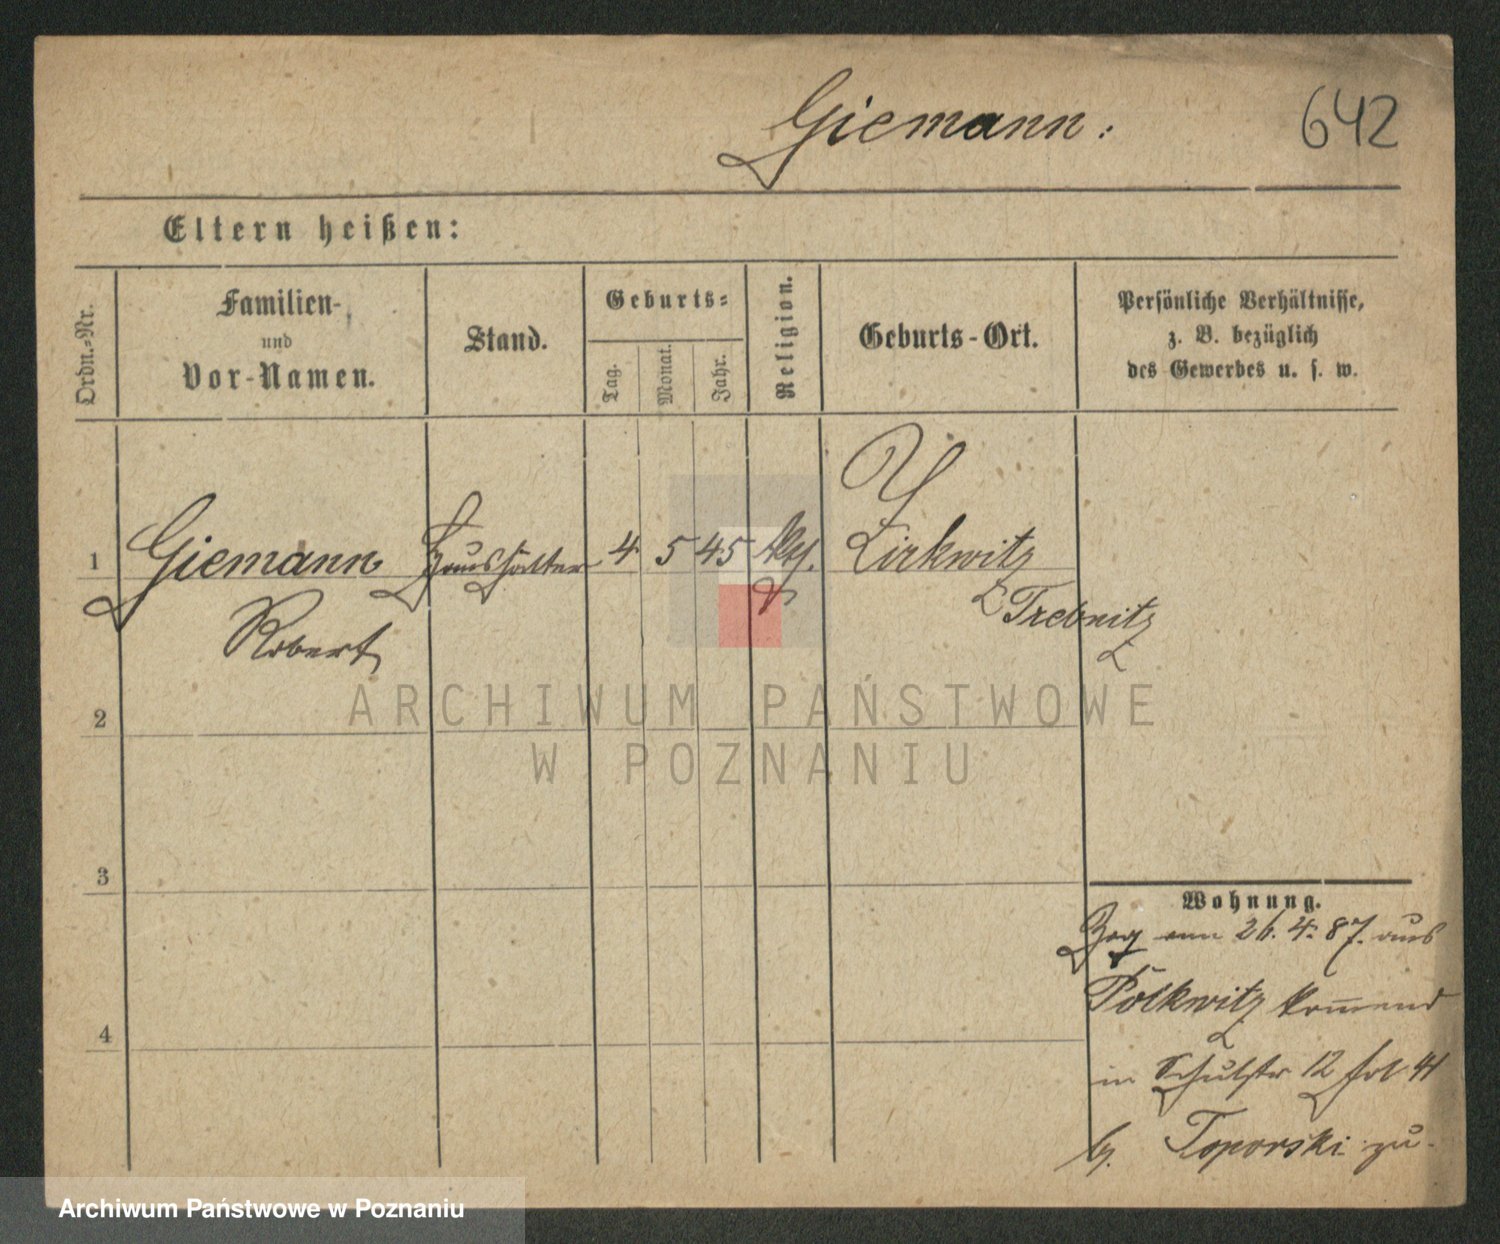 Giemann.
642
Eltern heißen:
Ordn.-Nr.
Familien-
und
Vor-Namen.
Stand.
Geburts-
Tag.
Monat.
Jahr.
Religion.
Geburts-Ort.
Persönliche Verhältnisse,
z. B. bezüglich
des Gewerbes u. s. w.
1
Giemann Haushälter 4 5 45 kth. Zirkwitz
Robert
Trebnitz
2
3
4
Wohnung.
Zog am 26. 4. 87. aus
Polkwitz kommend
in Schulstr 12 41
b. Toporski zu.
ARCHIWUM PAŃSTWOWE
W POZNANIU
Archiwum Państwowe w Poznaniu